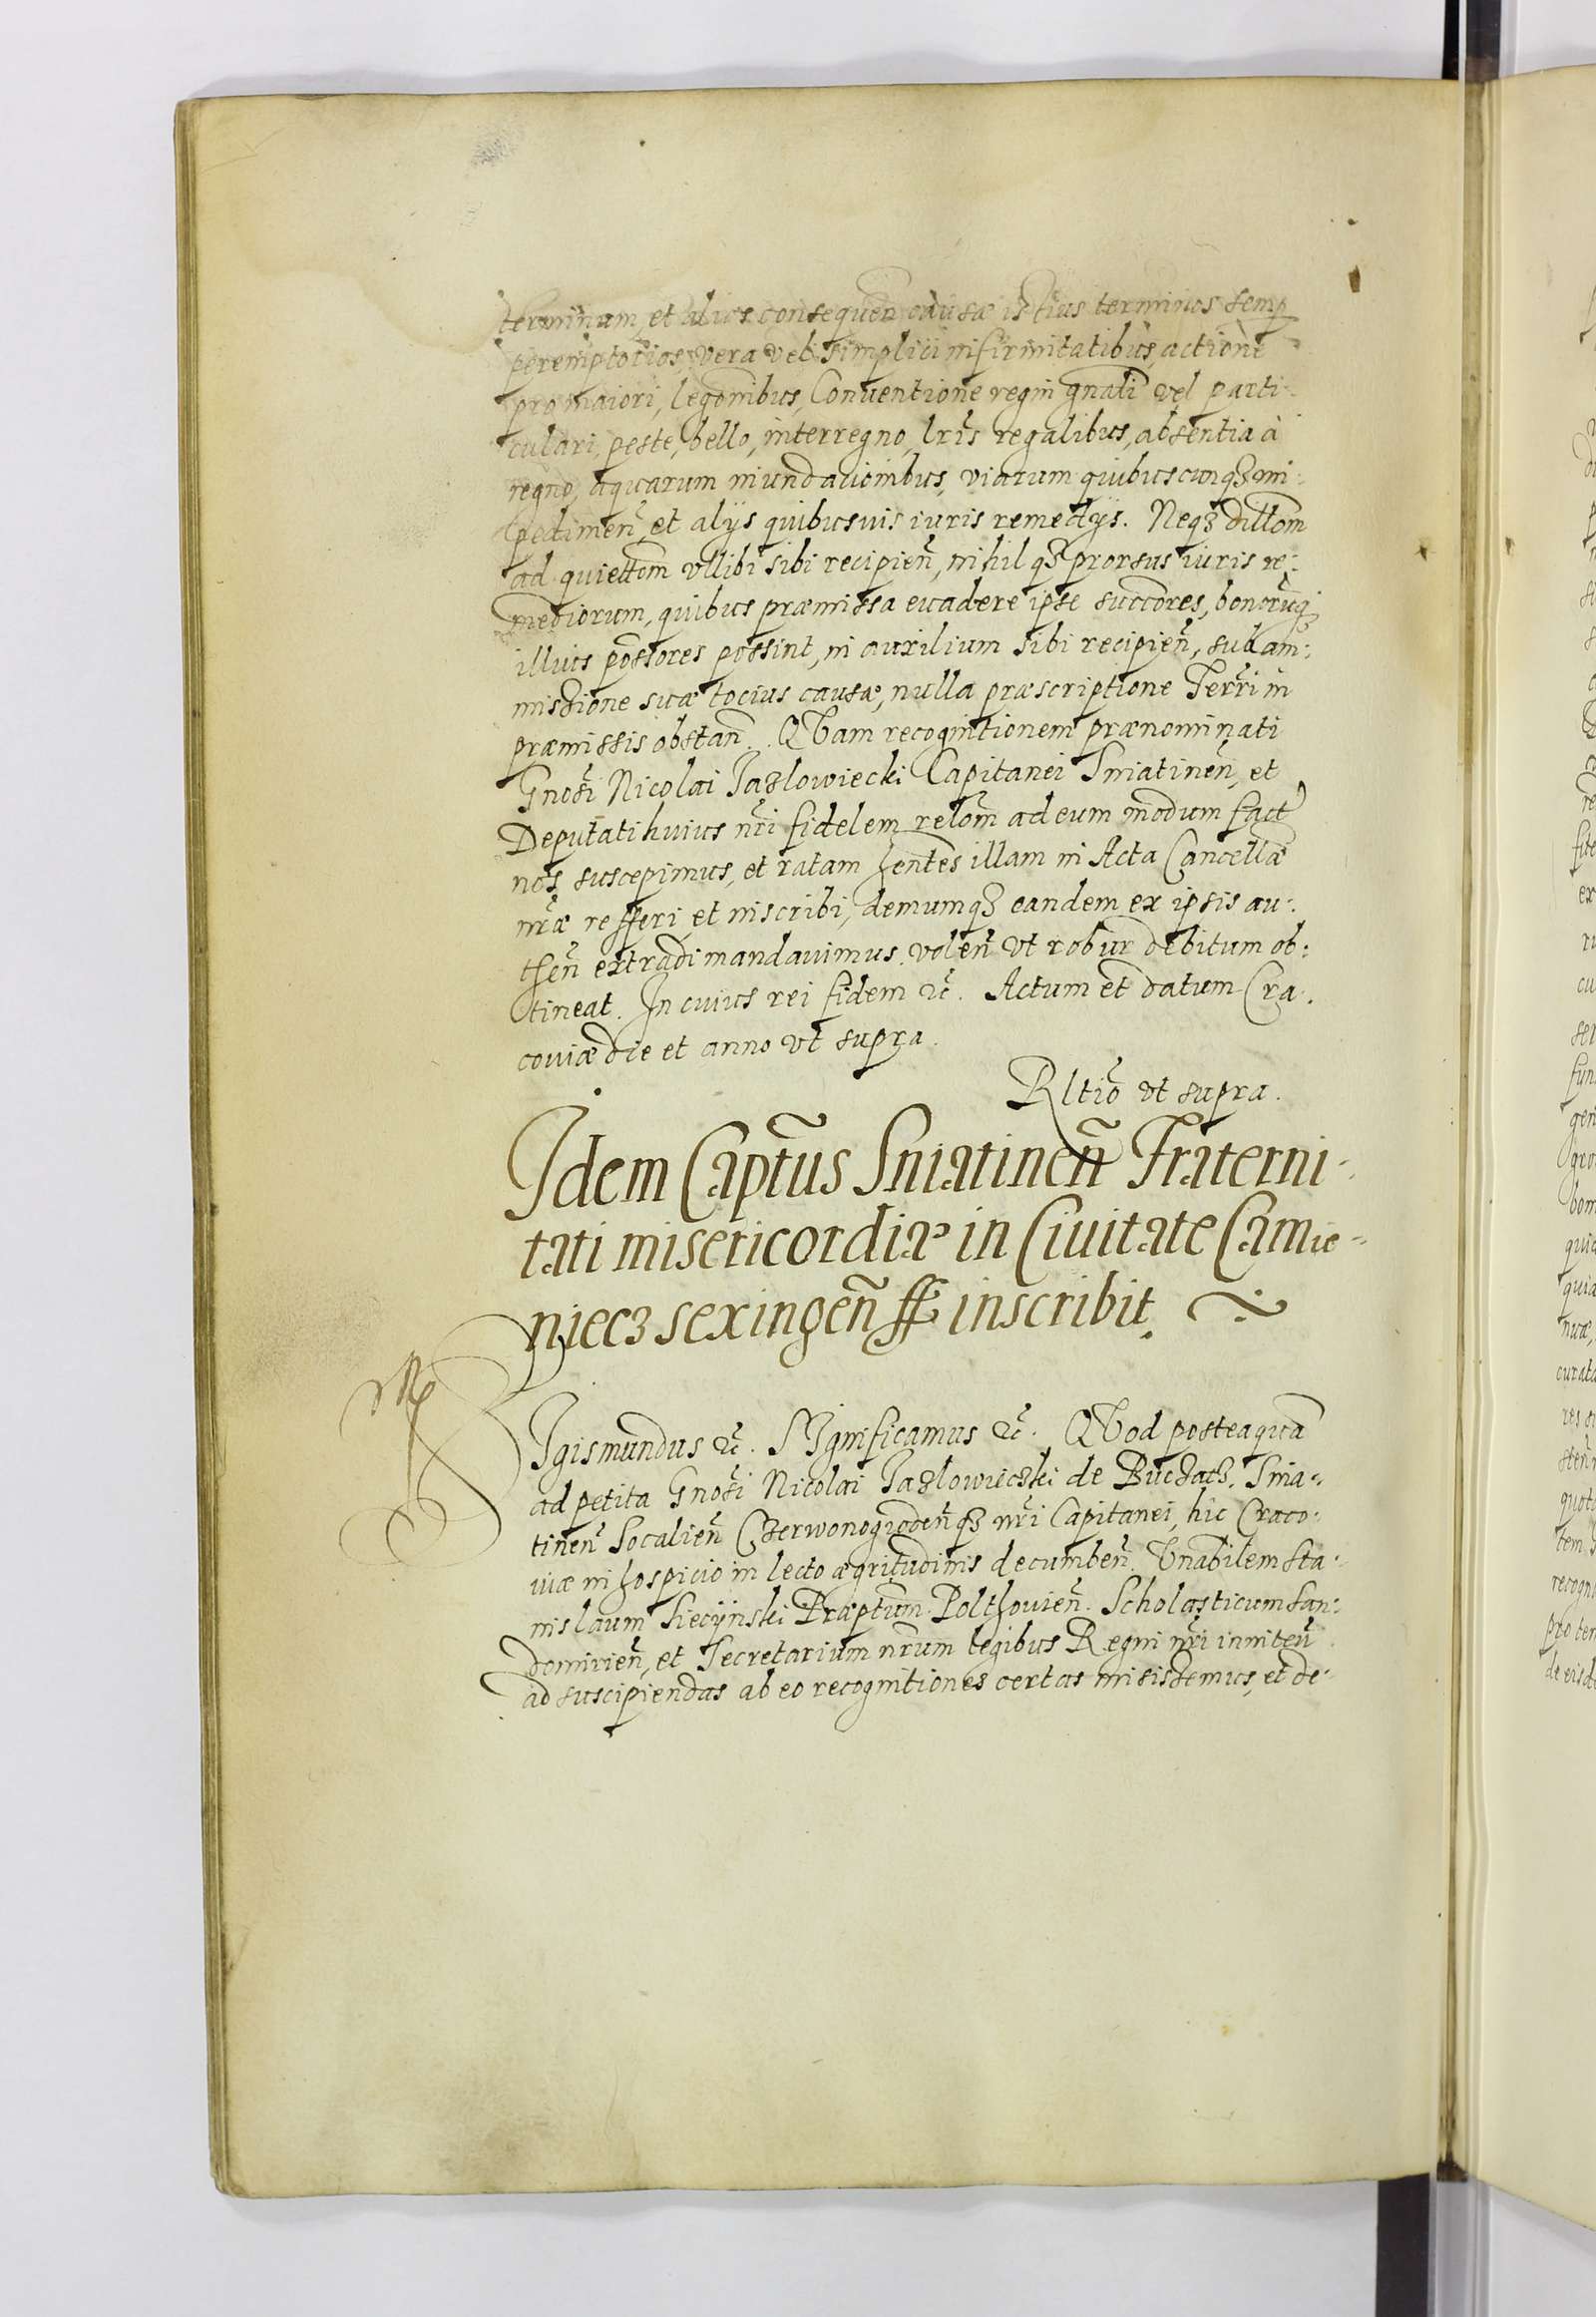 terminum, et alios consequeñ causæ istius terminos semp
peremptorios, vera vel simplici infirmitatibus, actione
pro maiori, legõnibus, Conuentione regni gnãli vel parti-
culari, peste, bello, interregno, lrĩs regalibus, absentia à
regno, aquarum inundationibus, viarum quibuscunqȝ im-
pedimeñ, et alijs quibusuis iuris remedijs. Neqȝ dillõm
ad quiettõm vllibi sibi recipieñ, nihilqȝ prorsus iuris re-
mediorum, quibus præmissa euadere ipse succõres, bonorũqȝ
illius põssores possint, in auxilium sibi recipieñ, sub am-
missione suæ tocius causæ, nulla præscriptione Terrĩ in
præmissis obstañ. QVam recognitionem prænominati
Gnosĩ Nicolai Jazlowiecki Capitanei Sniatineñ, et
Deputati huius nrĩ fidelem relõm ad eum modum fact
nos suscepimus, et ratam hentẽs illam in Acta Cancellæ
nræ̃ refferi et inscribi, demumqȝ eandem ex ipsis au-
theñ extradi mandauimus, voleñ vt robur debitum ob-
tineat. In cuius rei fidem &c̃. Actum et datum Cra-
couiæ die et anno vt supra.
Rltiõ vt supra.
Idem Captũs Sniatineñ Fraterni-
tati misericordiæ in Ciuitate Camie-
niecz sexingeñ ff inscribit.
SIgismundus &c̃. SIgnificamus &c̃. QVod posteaquã
ad petita Gnosĩ Nicolai Jazlowieczki de Buczacz, Snia-
tineñ Socalieñ Czerwonogrodeñqȝ nrĩ Capitanei, hic Craco-
uiæ in hospicio in lecto ægritudinis decumbeñ. Vnabilem Sta-
nislaum Siecÿnski Præptũm Polthouieñ. Scholasticum San-
domirieñ, et Secretarium nrũm legibus Regni nrĩ inniteñ
ad suscipiendas ab eo recognitiones certas misissemus, et de-